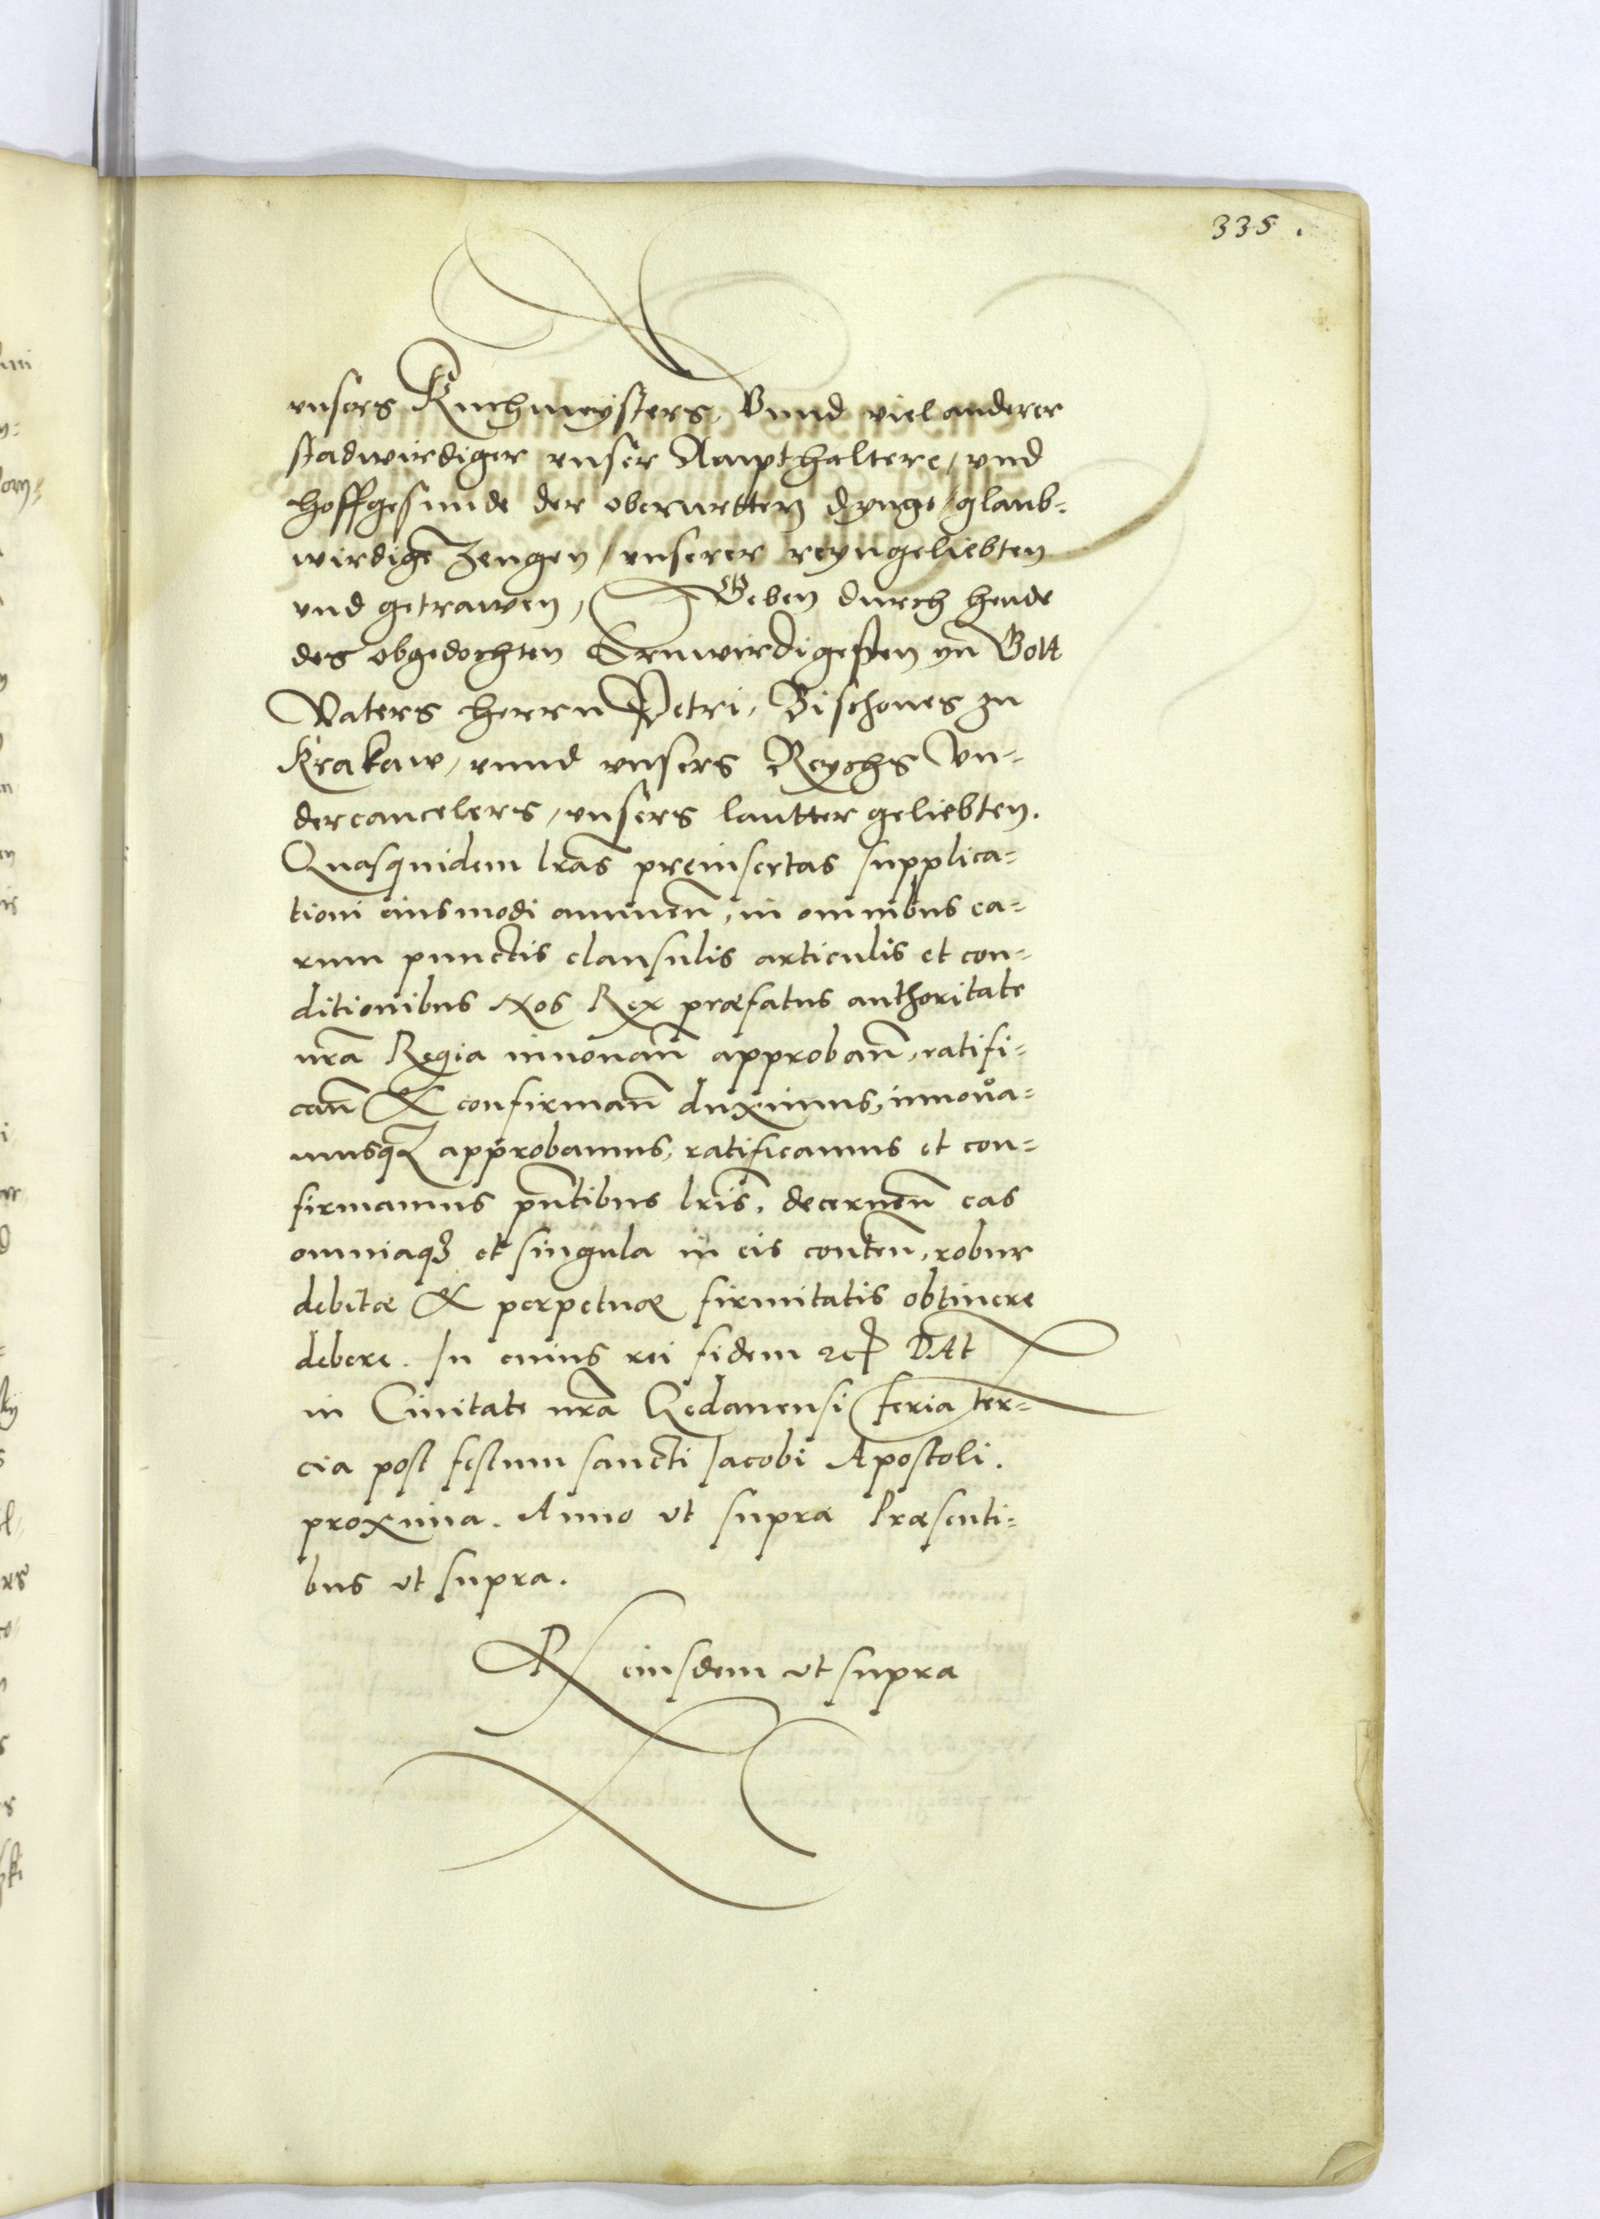 335.
vnsers Kuchmeysters, Vnnd viel anderer
stadwirdiger vnser Ampthaltere, vnd
hoffgesinde der oberurtten dynge, glaub-
wirdige Zeugen, vnserer reyngeliebten
vnd getrawen, Geben durch hende
des obgedochten Ernwirdigesten yn Gott
Vaters herrn Petri, Bischoues zu
Krakaw, vnnd vnsers Reychs Vn-
dercancelers, vnsers lautter geliebten.
Quasquidem lras preinsertas supplica-
tioni eiusmodi annuen, in omnibus ea-
rum punctis clausulis articulis et con-
ditionibus Nos Rex præfatus authoritate
nra Regia innouan approban, ratifi-
can & confirman duximus, innoua-
musq approbamus, ratificamus et con-
firmamus pntibus lris. decernen eas
omniaq et singula in eis conten, robur
debitæ & perpetuæ firmitatis obtinere
debere. In cuius rei fidem etc DAt
in Ciuitate nra Gedanensi feria ter-
cia post festum sancti Iacobi Apostoli.
proxima. Anno vt supra Præsenti-
bus vt supra.
R eiusdem vt supra